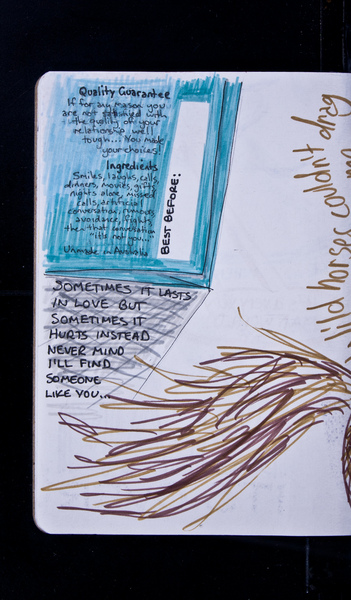 Quality Guarantee
If for any reason you
are not satisfied with
the quality of your
relationship well
tough... You made
your choices!
Ingredients
Smiles, laughs, calls,
dinners, movies, gifts,
nights alone, missed
calls, artificial
conversation, rumours,
avoidance, fights,
then that conversation
"it's not you..."
Unmade in Australia
BEST BEFORE:
SOMETIMES IT LASTS
IN LOVE BUT
SOMETIMES IT
HURTS INSTEAD
NEVER MIND
I'LL FIND
SOMEONE
LIKE YOU...
Wild horses couldn't drag
me